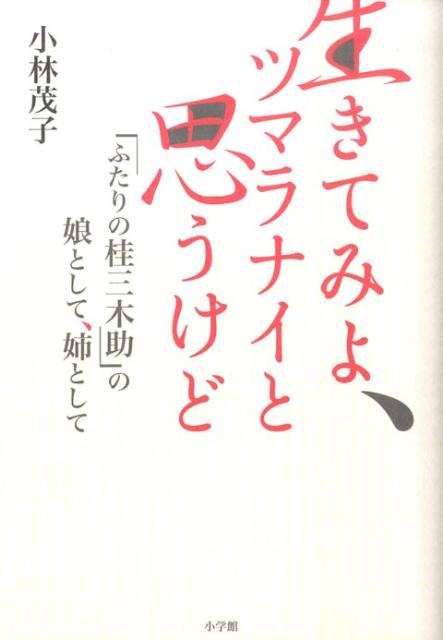 生きてみよ、
ツマラナイと
思うけど
「ふたりの桂三木助」の
娘として、姉として
小林茂子
小学館